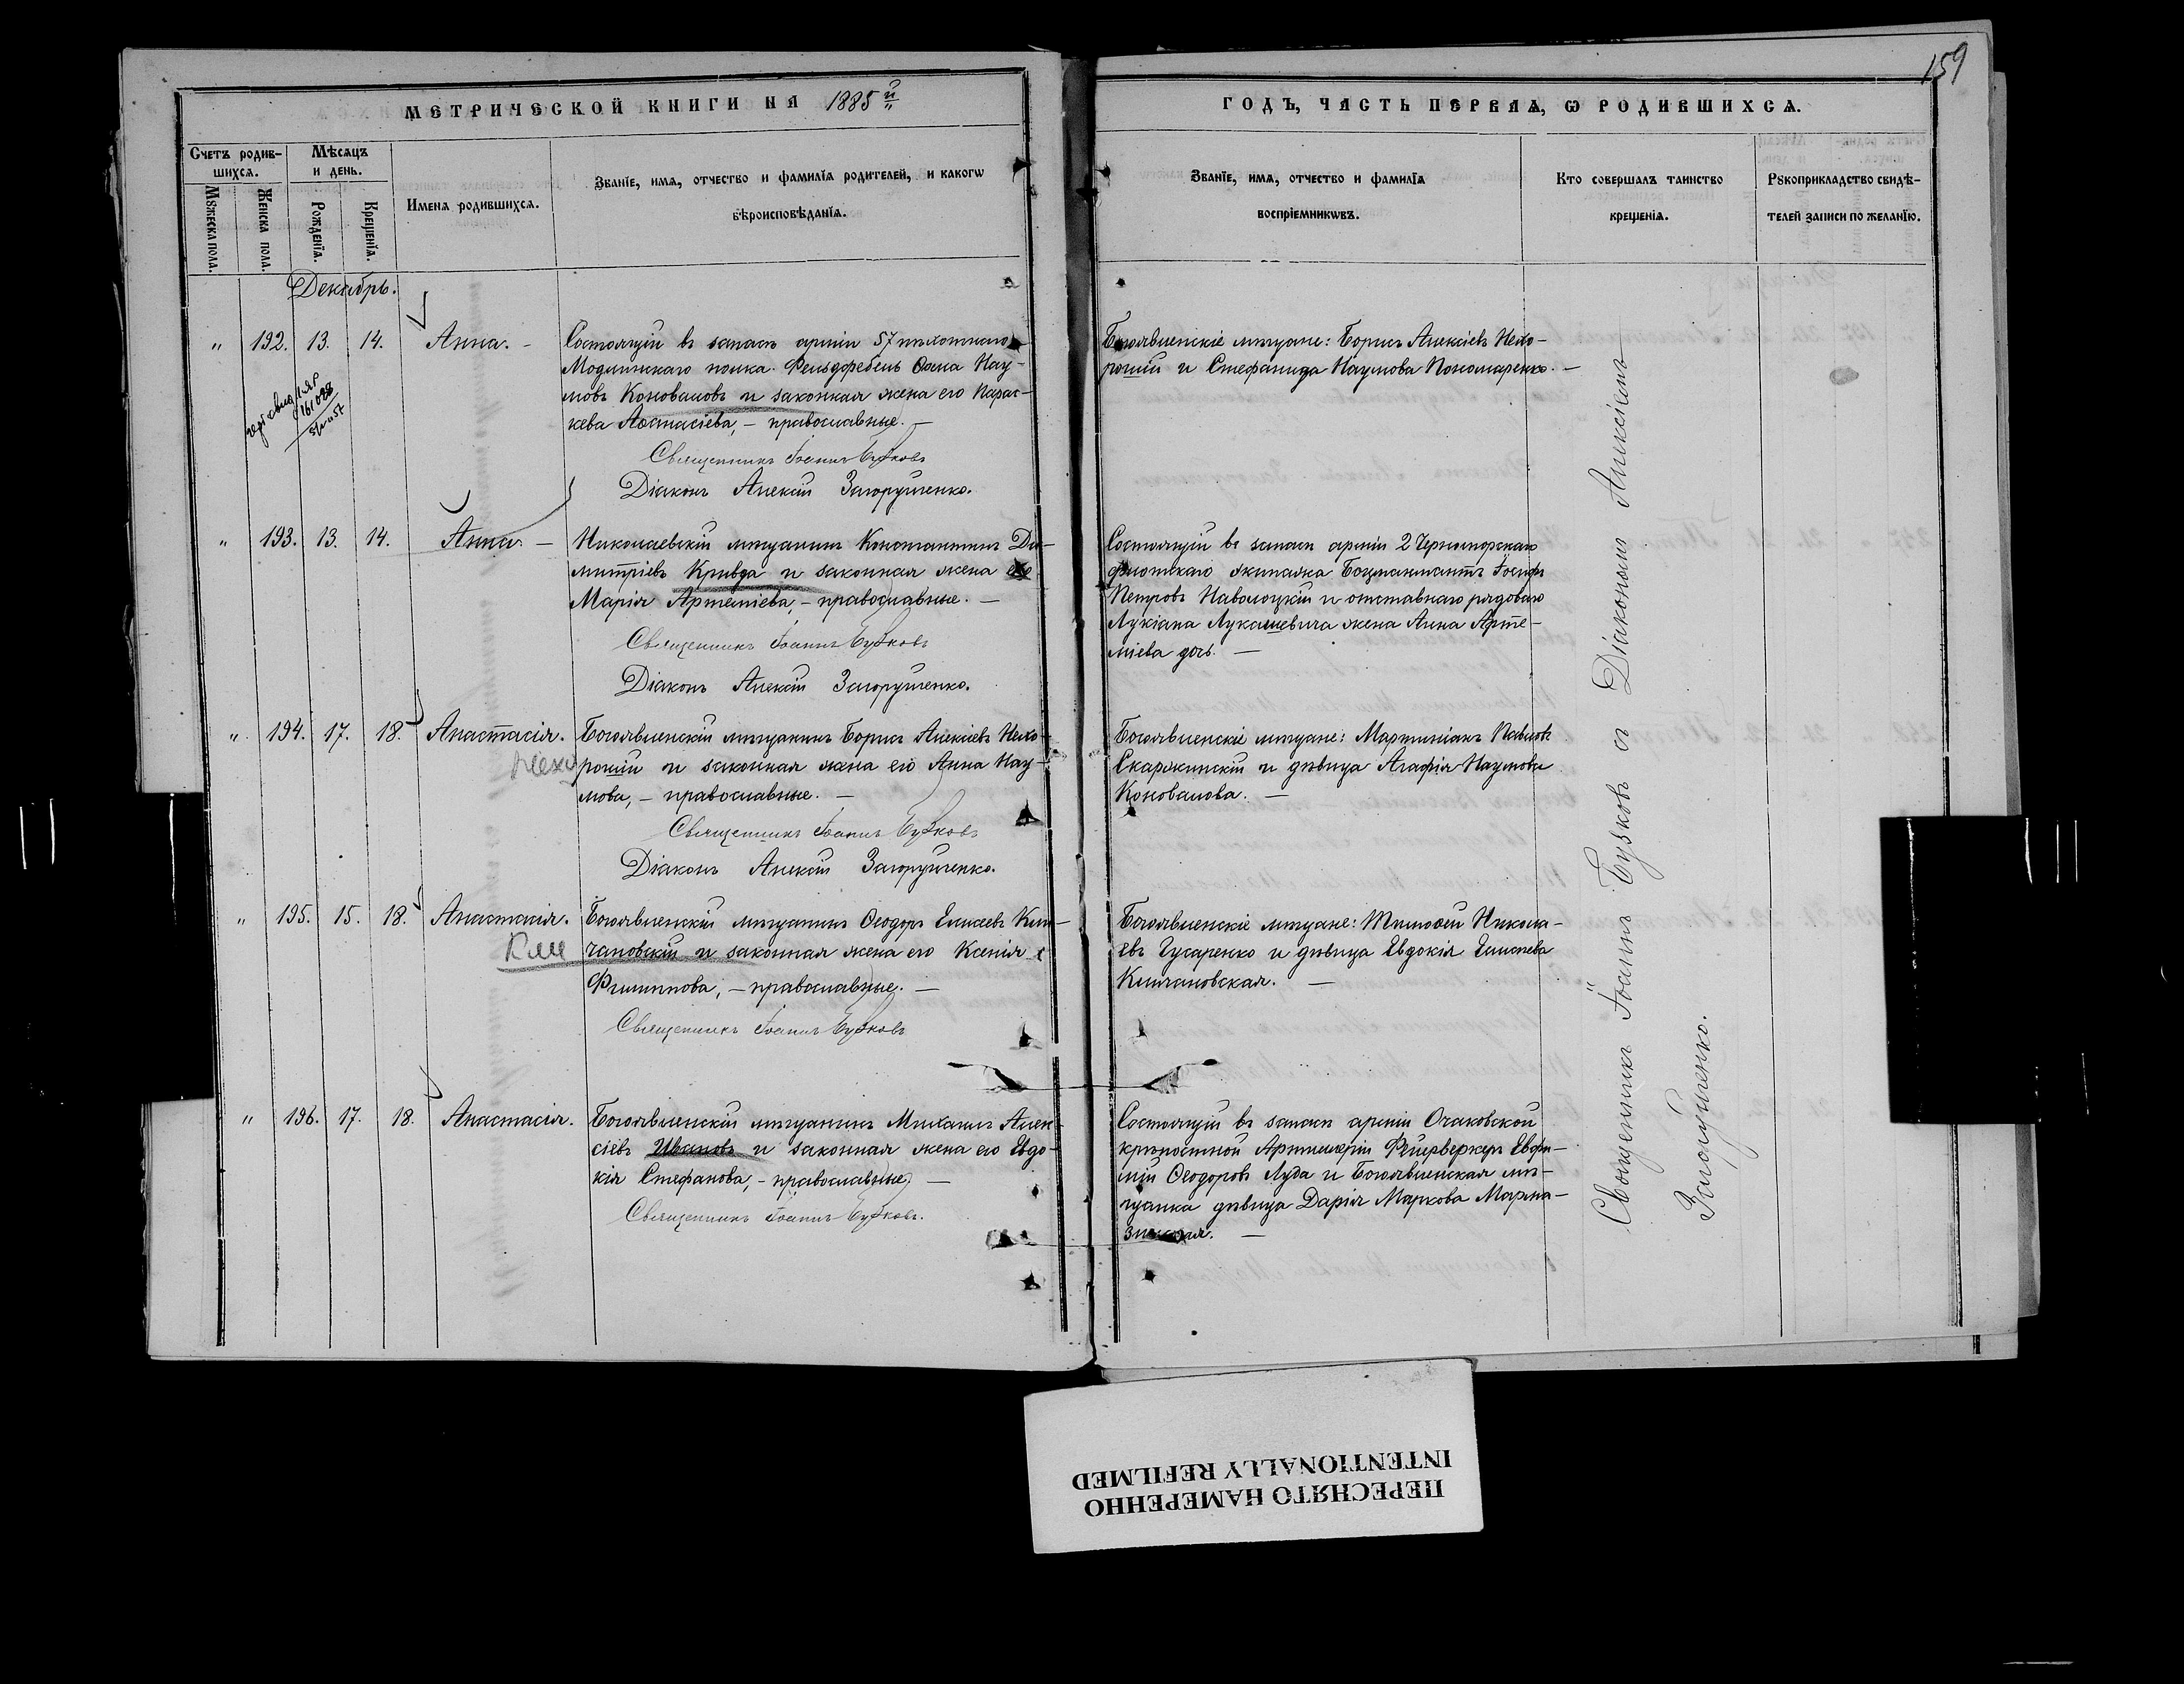 159
МЕТРИЧЕСКОЙ КНИГИ НА 1885й
ГОДЪ, ЧАСТЬ ПЕРВАЯ, Ѡ РОДИВШИХСѦ.
Счетъ родив-
шихсѧ.
Мѣсѧцъ
и день.
Мꙋжеска пола.
Женска пола.
Рожденїѧ.
Крещенїѧ.
Имена родившихсѧ.
Званїе, имѧ, отчество и фамилїѧ родителей, и какогѡ
вѣроисповѣданїѧ.
Званїе, имѧ, отчество и фамилїѧ
воспрїемникѡвъ.
Кто совершалъ таинство
крещенїѧ.
Рꙋкоприкладство свидѣ-
телей записи по желанїю.
Декабрь.
" 192. 13. 14. Анна. -
Состоящій въ запасѣ арміи 57 пѣхотнаго
Модлинскаго полка Фельдфебель Ѳома Нау-
мовъ Коноваловъ и законная жена его Парас-
кева Аѳанасіева, - православные. -
Священникъ Іоаннъ Бузковъ
Діаконъ Алексій Загорулченко.
Богоявленскіе мѣщане: Борисъ Алексіевъ Нехо-
рошій и Стефанида Наумова Пономаренко. -
" 193. 13. 14. Анна. -
Николаевскій мѣщанинъ Константинъ Ди-
митріевъ Кривда и законная жена его
Марія Артеміева, - православные. -
Священникъ Іоаннъ Бузковъ
Діаконъ Алексій Загорулченко.
Состоящій въ запасѣ арміи 2 Черноморскаго
флотскаго экипажа Боцманматъ Іосифъ
Петровъ Наволоцкій и отставнаго рядоваго
Лукіана Лукашевича жена Анна Арте-
міева дочь. -
" 194. 17. 18. Анастасія.
Богоявленскій мѣщанинъ Борисъ Алексіевъ Нехо-
Нехо
рошій и законная жена его Анна Нау-
мова, - православные. -
Священникъ Іоаннъ Бузковъ
Діаконъ Алексій Загорулченко.
Богоявленскіе мѣщане: Мартиніанъ Павловъ
Скаржинскій и дѣвица Агафія Наумова
Коновалова. -
" 195. 15. 18. Анастасія.
Богоявленскій мѣщанинъ Ѳеодоръ Елисеевъ Кли-
Кли
чановскій и законная жена его Ксенія
Филиппова, - православные. -
Священникъ Іоаннъ Бузковъ
Богоявленскіе мѣщане: Тимоѳей Никола-
евъ Гусаренко и дѣвица Евдокія Елисеева
Кличановская. -
" 196. 17. 18. Анастасія.
Богоявленскій мѣщанинъ Михаилъ Алек-
сіевъ Ивановъ и законная жена его Евдо-
кія Стефанова, - православные. -
Священникъ Іоаннъ Бузковъ.
Состоящій въ запасѣ арміи Очаковской
крѣпостной Артиллеріи Фейерверкеръ Евфи-
мій Ѳеодоровъ Луда и Богоявленская мѣ-
щанка дѣвица Дарія Маркова Марма-
Священникъ Іоаннъ Бузковъ съ Діакономъ Алексіемъ
Загорулченко.
ПЕРЕСНЯТО НАМЕРЕННО
INTENTIONALLY REFILMED